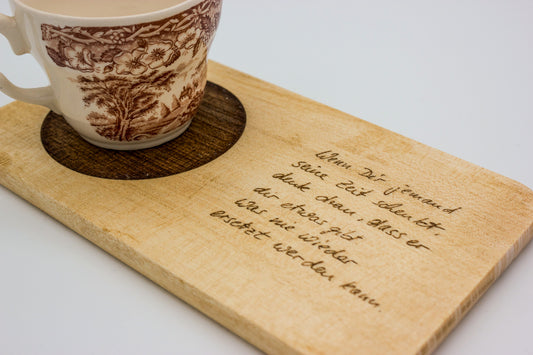 Wenn Dir jemand
seine Zeit schenkt,
denk dran, dass er
dir etwas gibt
was nie wieder
ersetzt werden kann.